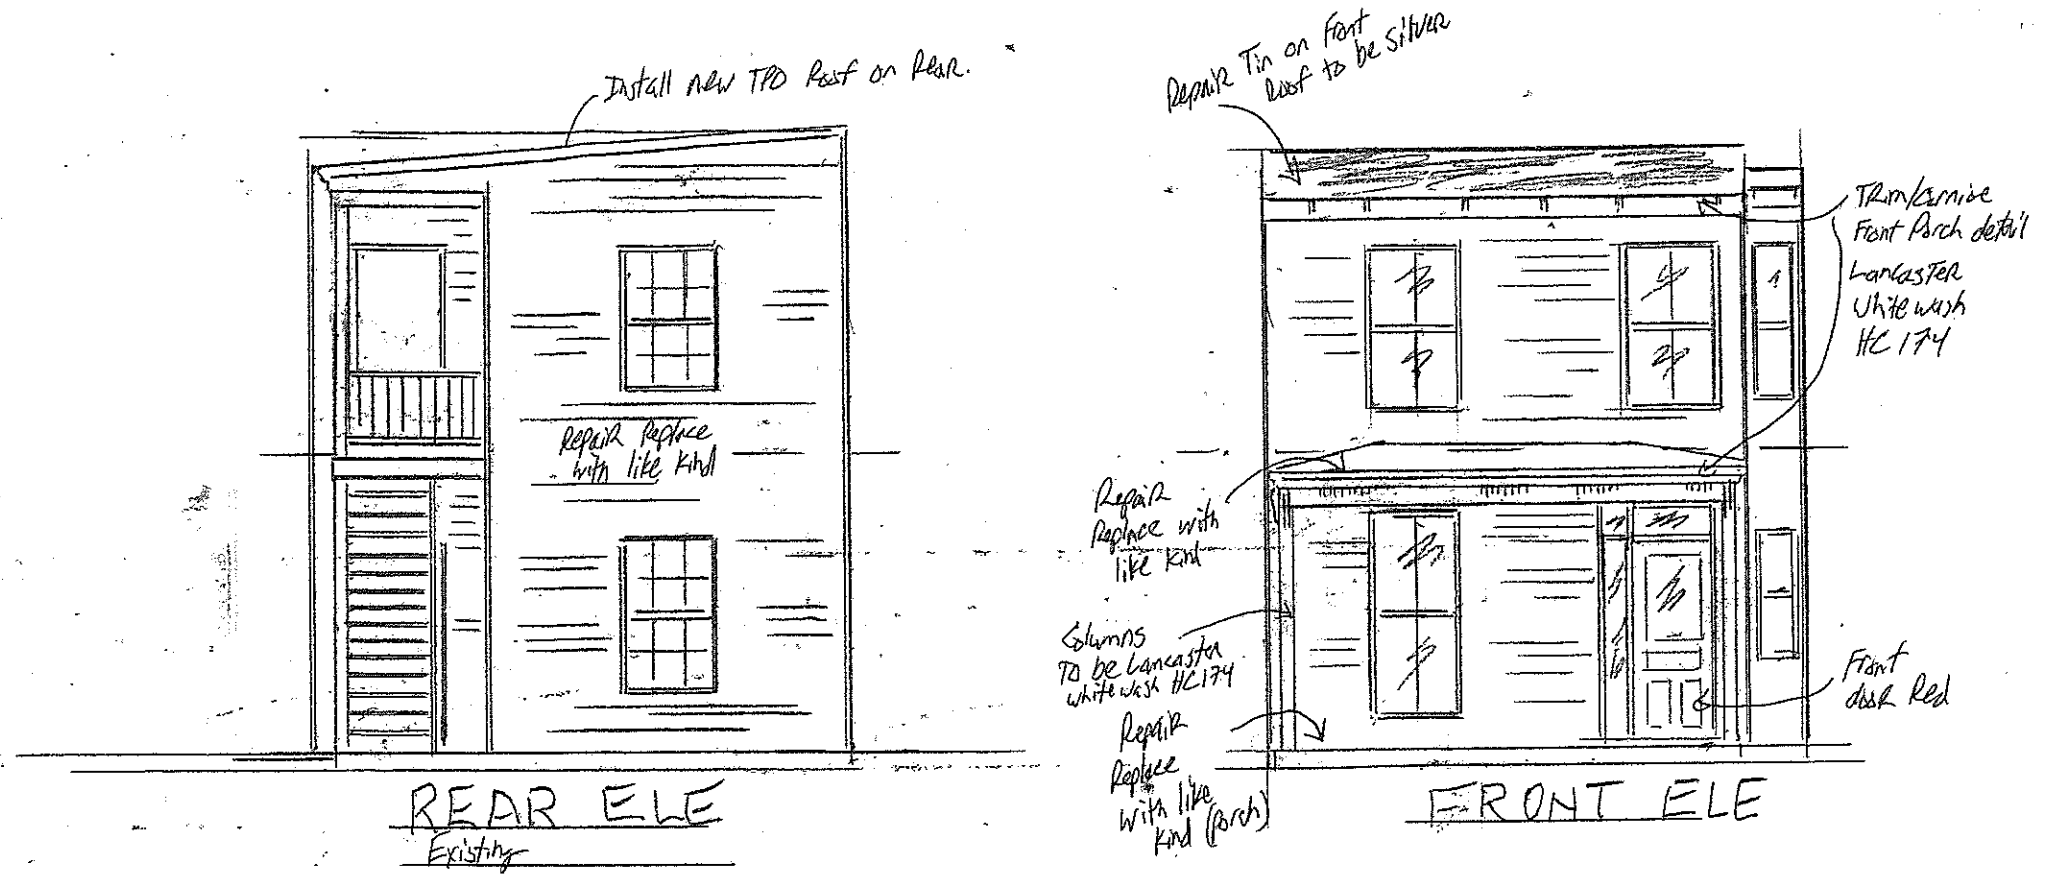 Install new TPO Roof on Rear.
Repair Replace
with like kind
REAR ELE
Existing
Repair Tin on Front
Roof to be silver
Trim/Cornice
Front Porch detail
Lancaster
Whitewash
HC 174
Repair
Replace with
like kind
Columns
To be Lancaster
whitewash HC174
Repair
Replace
with like
kind (Porch)
Front
door Red
FRONT ELE